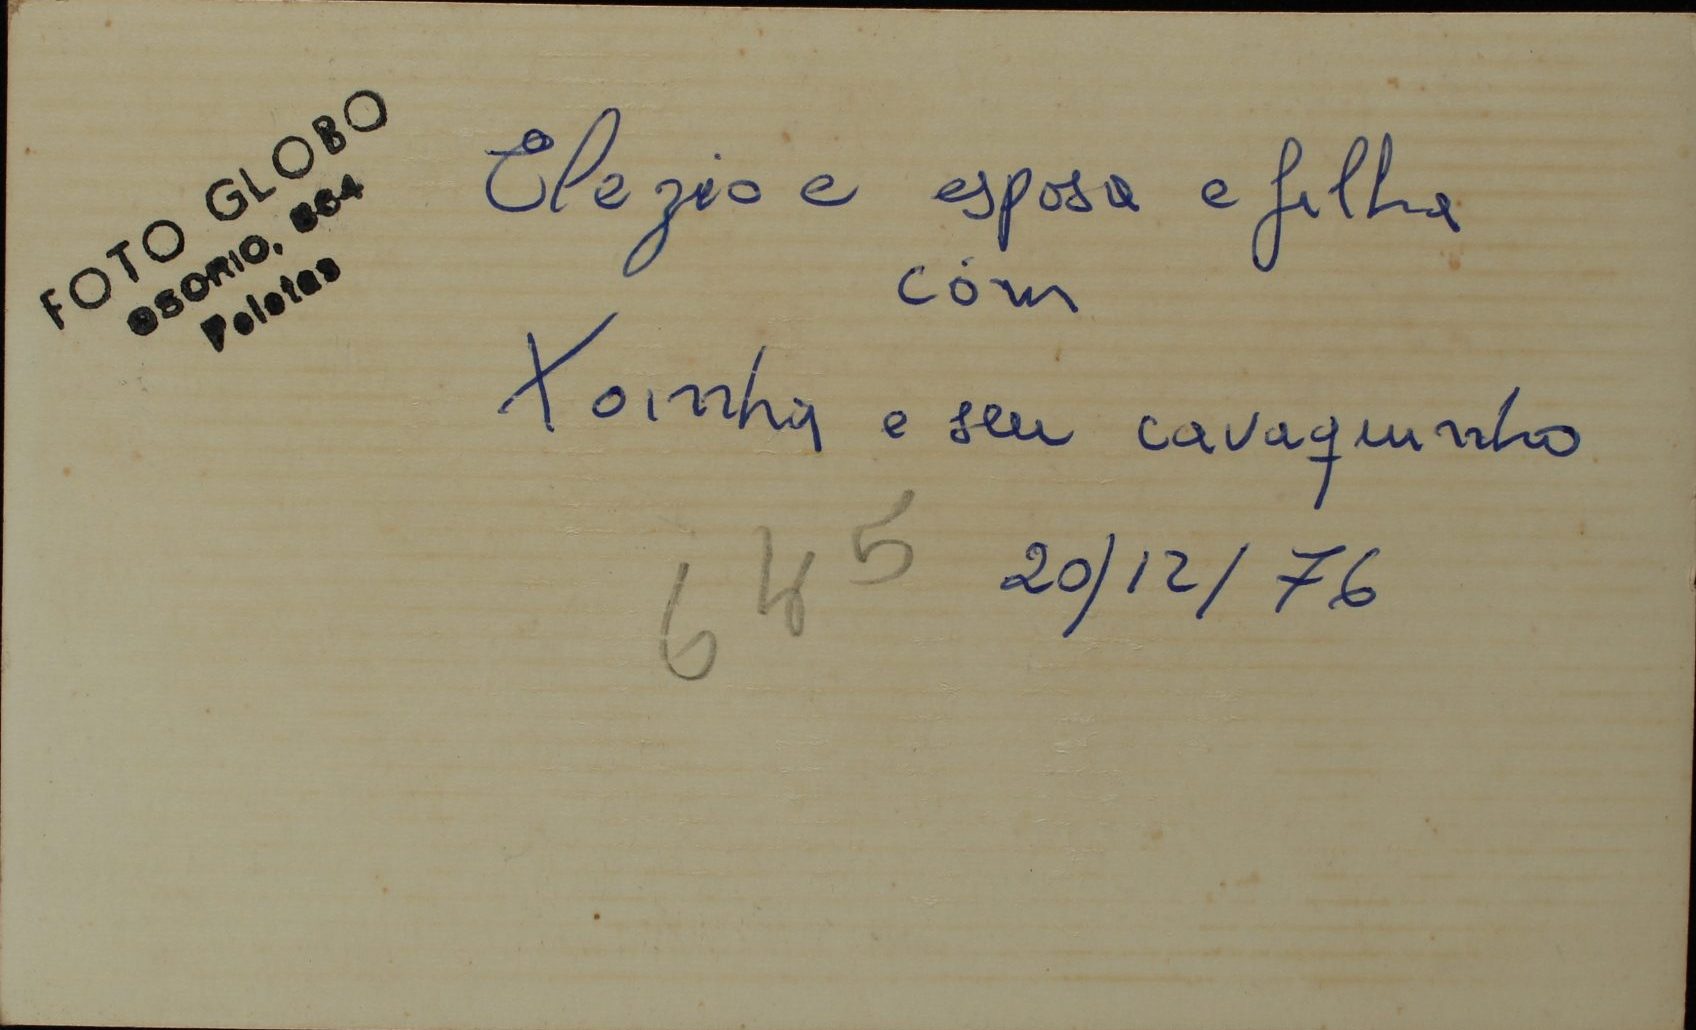 FOTO GLOBO
OSORIO, 864
Pelotas
Elezio e esposa e filha
com
Xoinha e seu cavaquinho
645
20/12/76